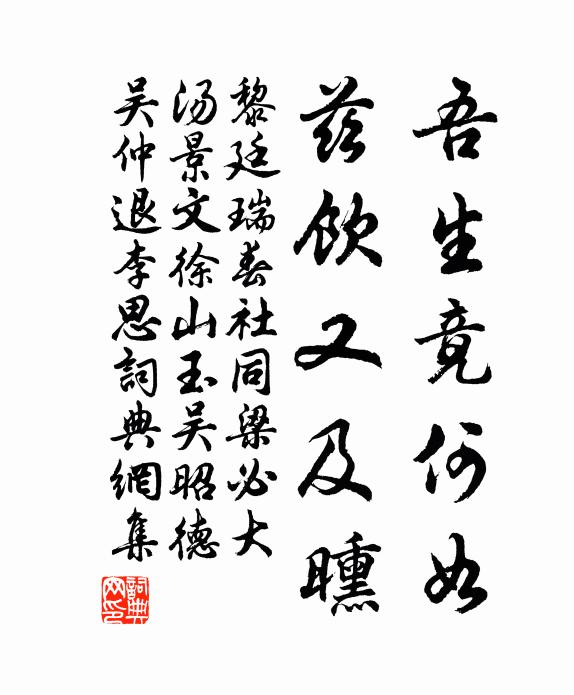 吾生竟何如
茲飲又及曛
黎廷瑞春社同梁必大
湯景文徐山玉吴昭德
吴仲退李思詞典網集
詞典
网印